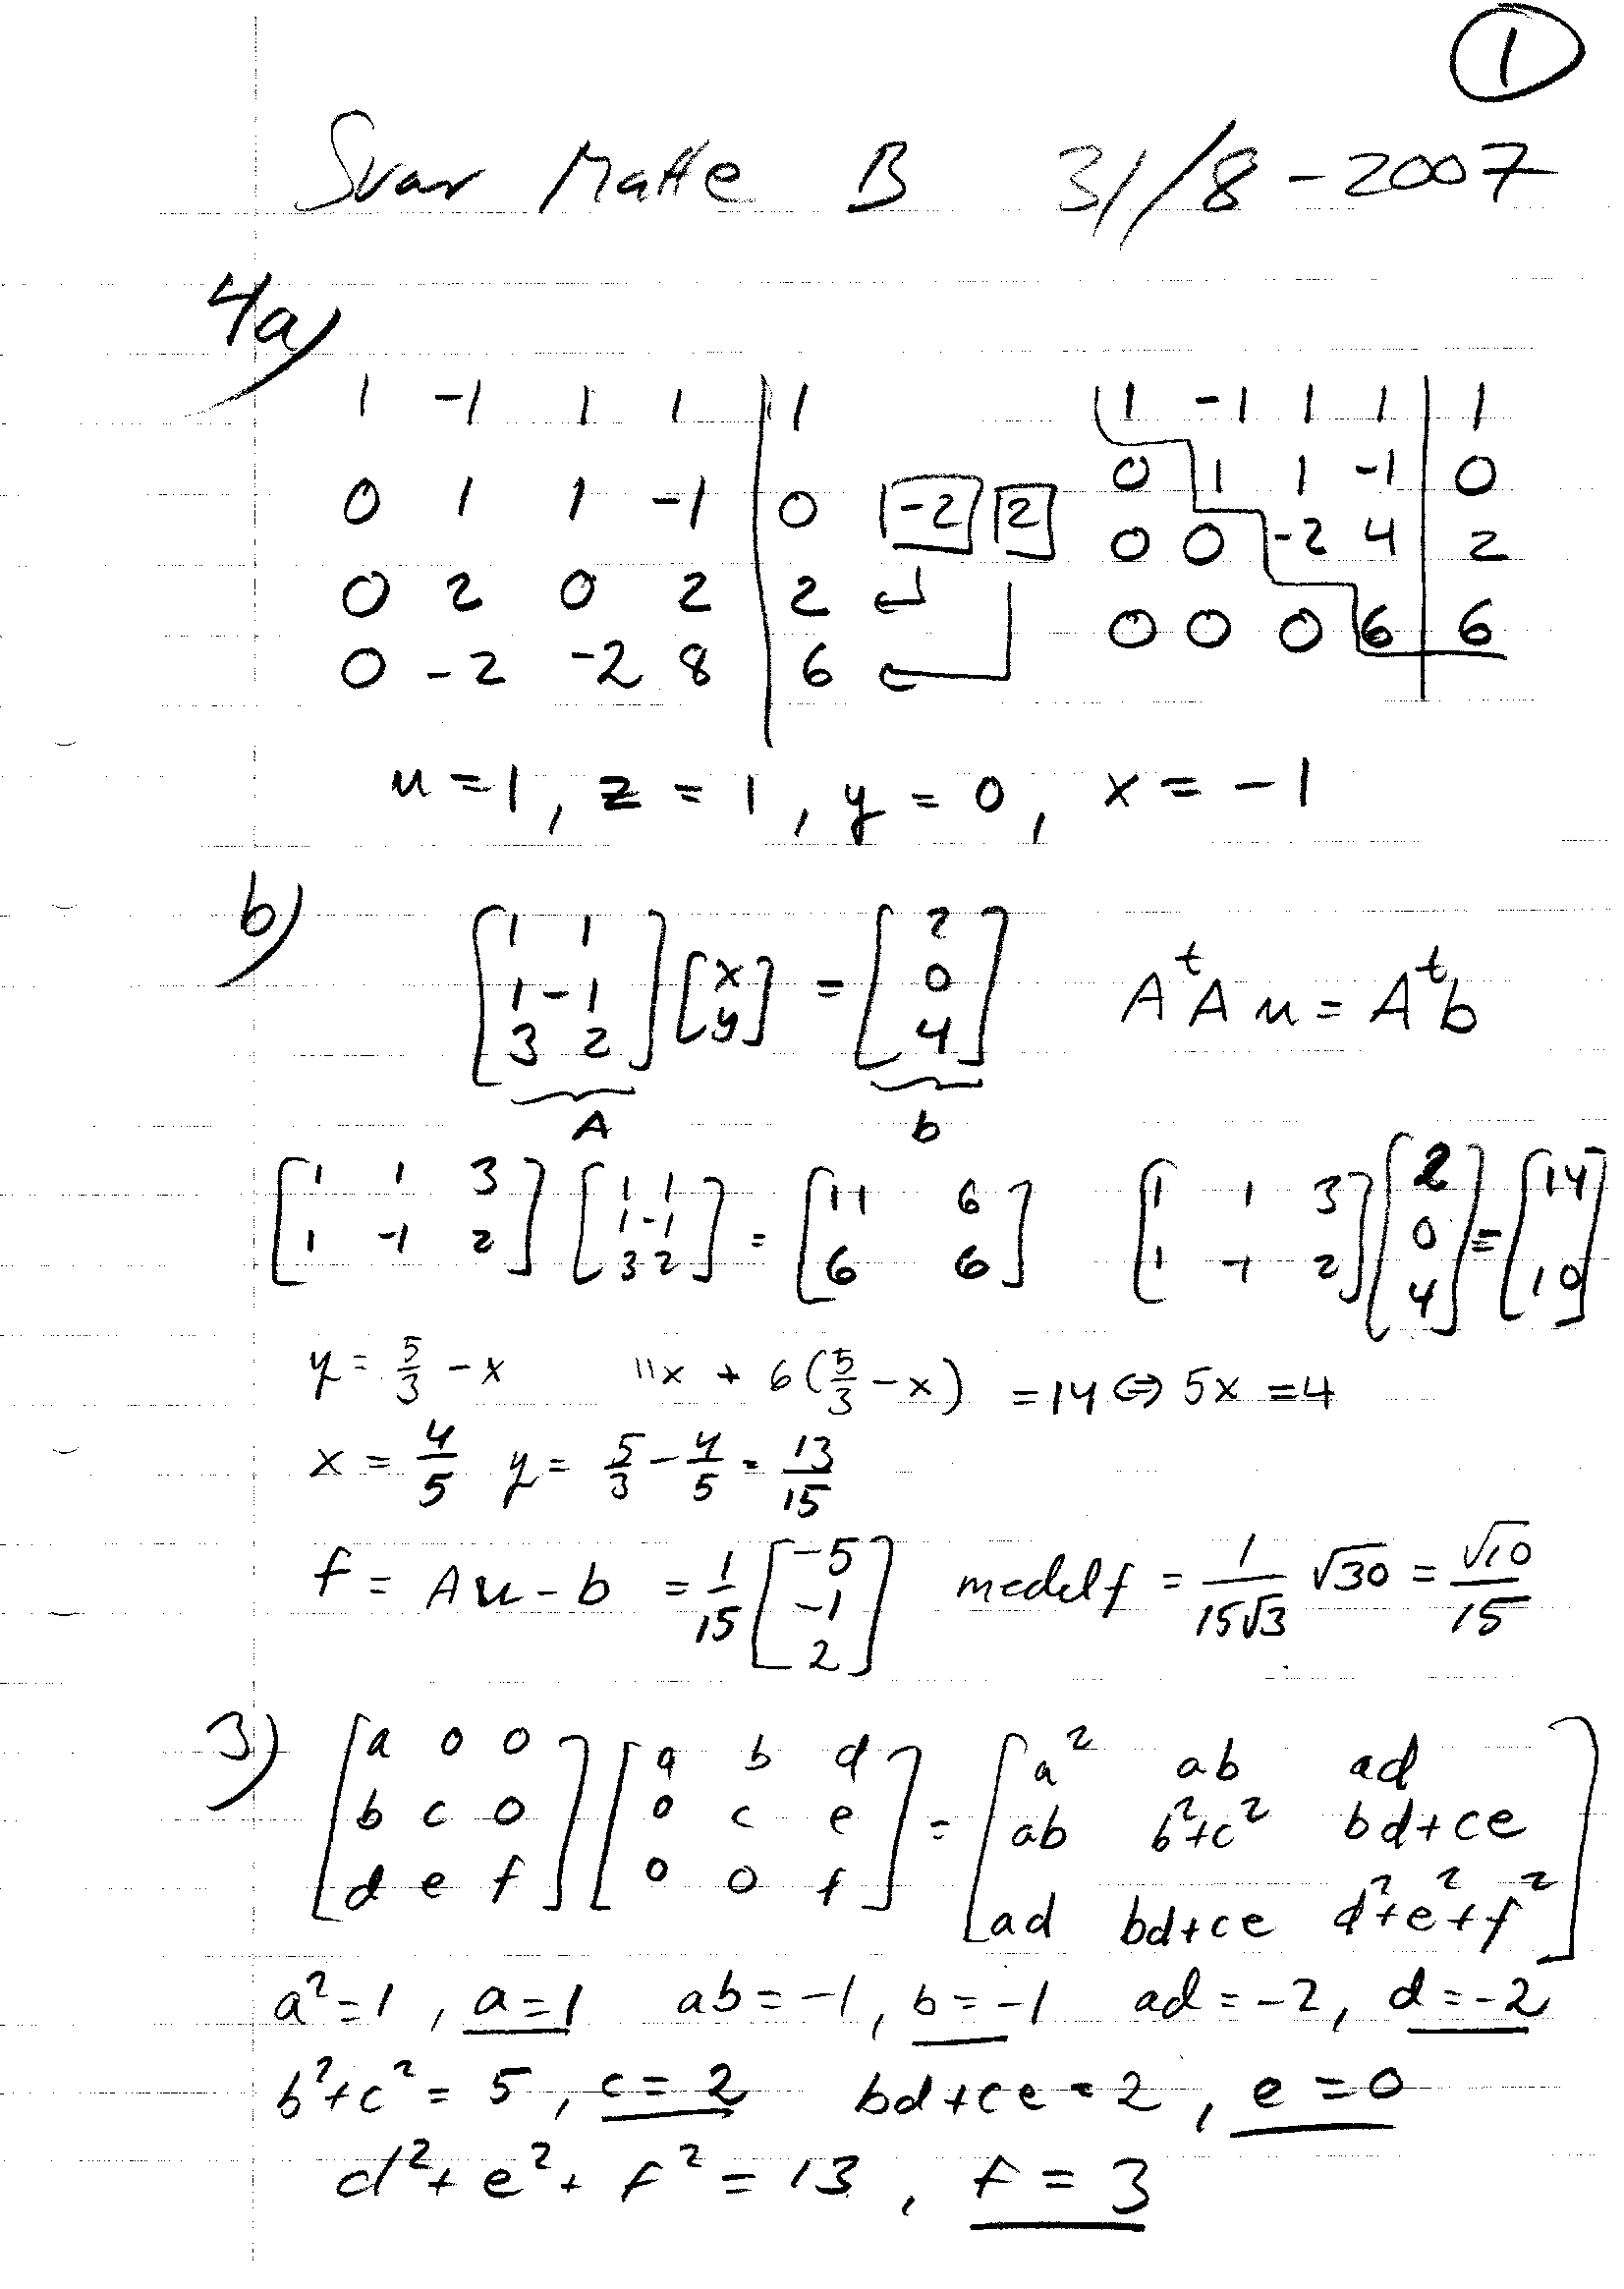 1
Svar Matte B 31/8-2007
4a)
1 -1 1 1 | 1
0 1 1 -1 | 0 -2 2
0 2 0 2 | 2
0 -2 -2 8 | 6
1 -1 1 1 | 1
0 1 1 -1 | 0
0 0 -2 4 | 2
0 0 0 6 | 6
u = 1, z = 1, y = 0, x = -1
b)
[1 1; 1 -1; 3 2] [x; y] = [2; 0; 4] AᵗA u = Aᵗb
A b
[1 1 3; 1 -1 2] [1 1; 1 -1; 3 2] = [11 6; 6 6] [1 1 3; 1 -1 2] [2; 0; 4] = [14; 10]
y = 5/3 - x 11x + 6(5/3 - x) = 14 ⇔ 5x = 4
x = 4/5 y = 5/3 - 4/5 = 13/15
f = Au - b = 1/15 [-5; -1; 2] medelf = 1/(15√3) √30 = √10/15
3)
[a 0 0; b c 0; d e f] [a b d; 0 c e; 0 0 f] = [a² ab ad; ab b²+c² bd+ce; ad bd+ce d²+e²+f²]
a² = 1, a = 1 ab = -1, b = -1 ad = -2, d = -2
b²+c² = 5, c = 2 bd+ce = 2, e = 0
d²+e²+f² = 13, f = 3